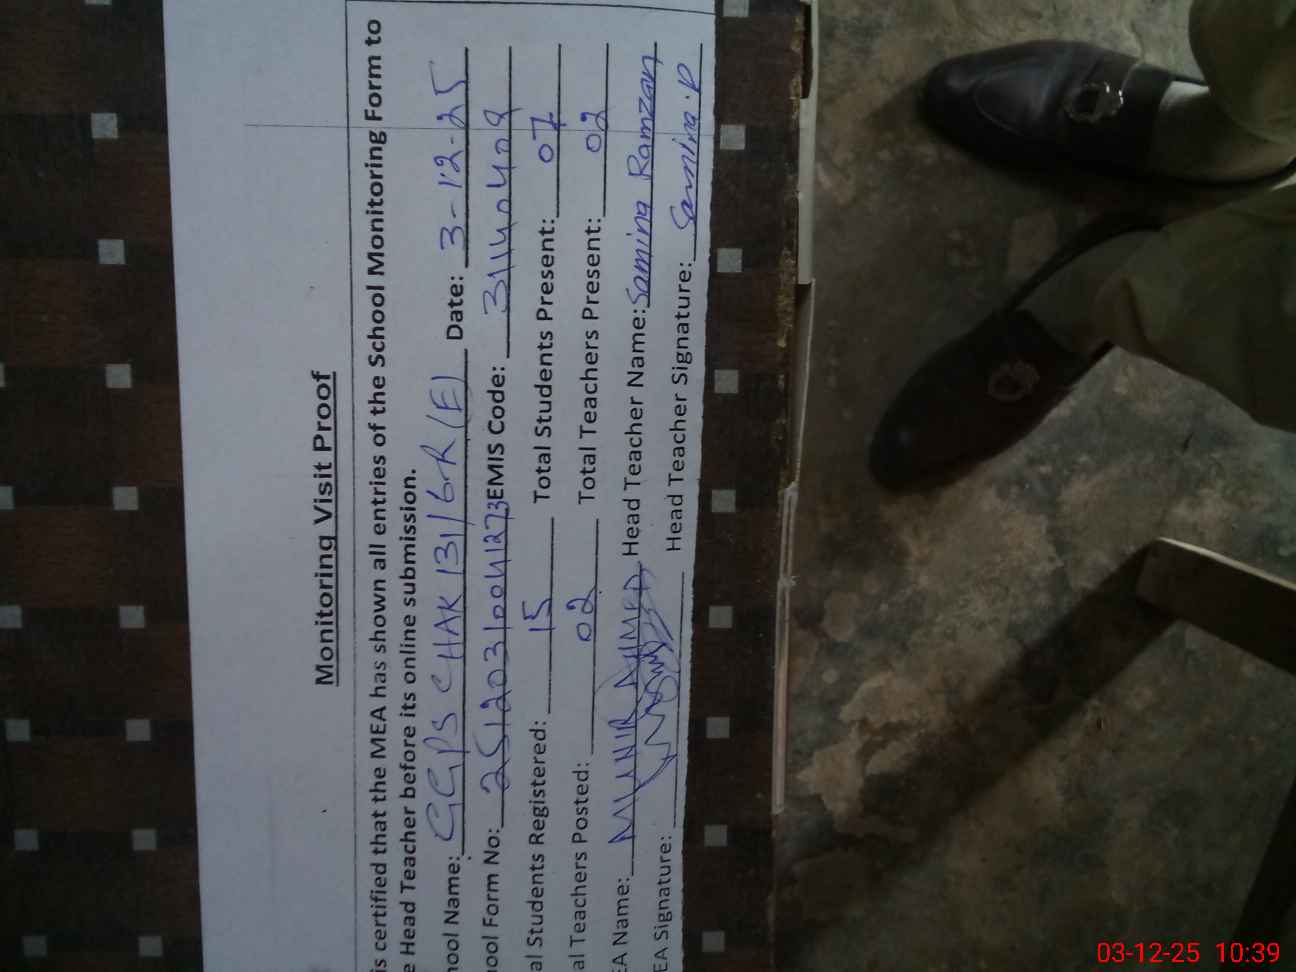 Monitoring Visit Proof
is certified that the MEA has shown all entries of the School Monitoring Form to
e Head Teacher before its online submission.
hool Name: GGPS CHAK 131/6R (E) Date: 3-12-25
hool Form No: 25120310041273 EMIS Code: 31140409
al Students Registered: 15 Total Students Present: 07
al Teachers Posted: 02 Total Teachers Present: 02
EA Name: MUNIR AHMED Head Teacher Name: Samina Ramzan
EA Signature: Head Teacher Signature: Samina.R
03-12-25 10:39